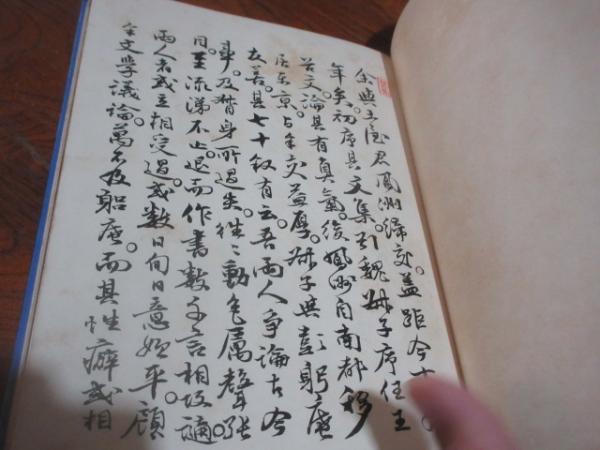 余與王君鳳洲締交。蓋距今十
年矣。初序其文集。引魏叔子序任王
谷文論其有真氣。後鳳洲自南都移
居東京。與余交益厚。叔子與彭躬庵
友善。其七十敘有云。吾兩人爭論古今
事。及督身所過失。往々動色厲聲張
目。至流涕不止。退而作書數千言相攻謫。
兩人者或立相受過。或數日旬日意始平。顧
余文學議論。萬不及躬庵。而其性癖或相